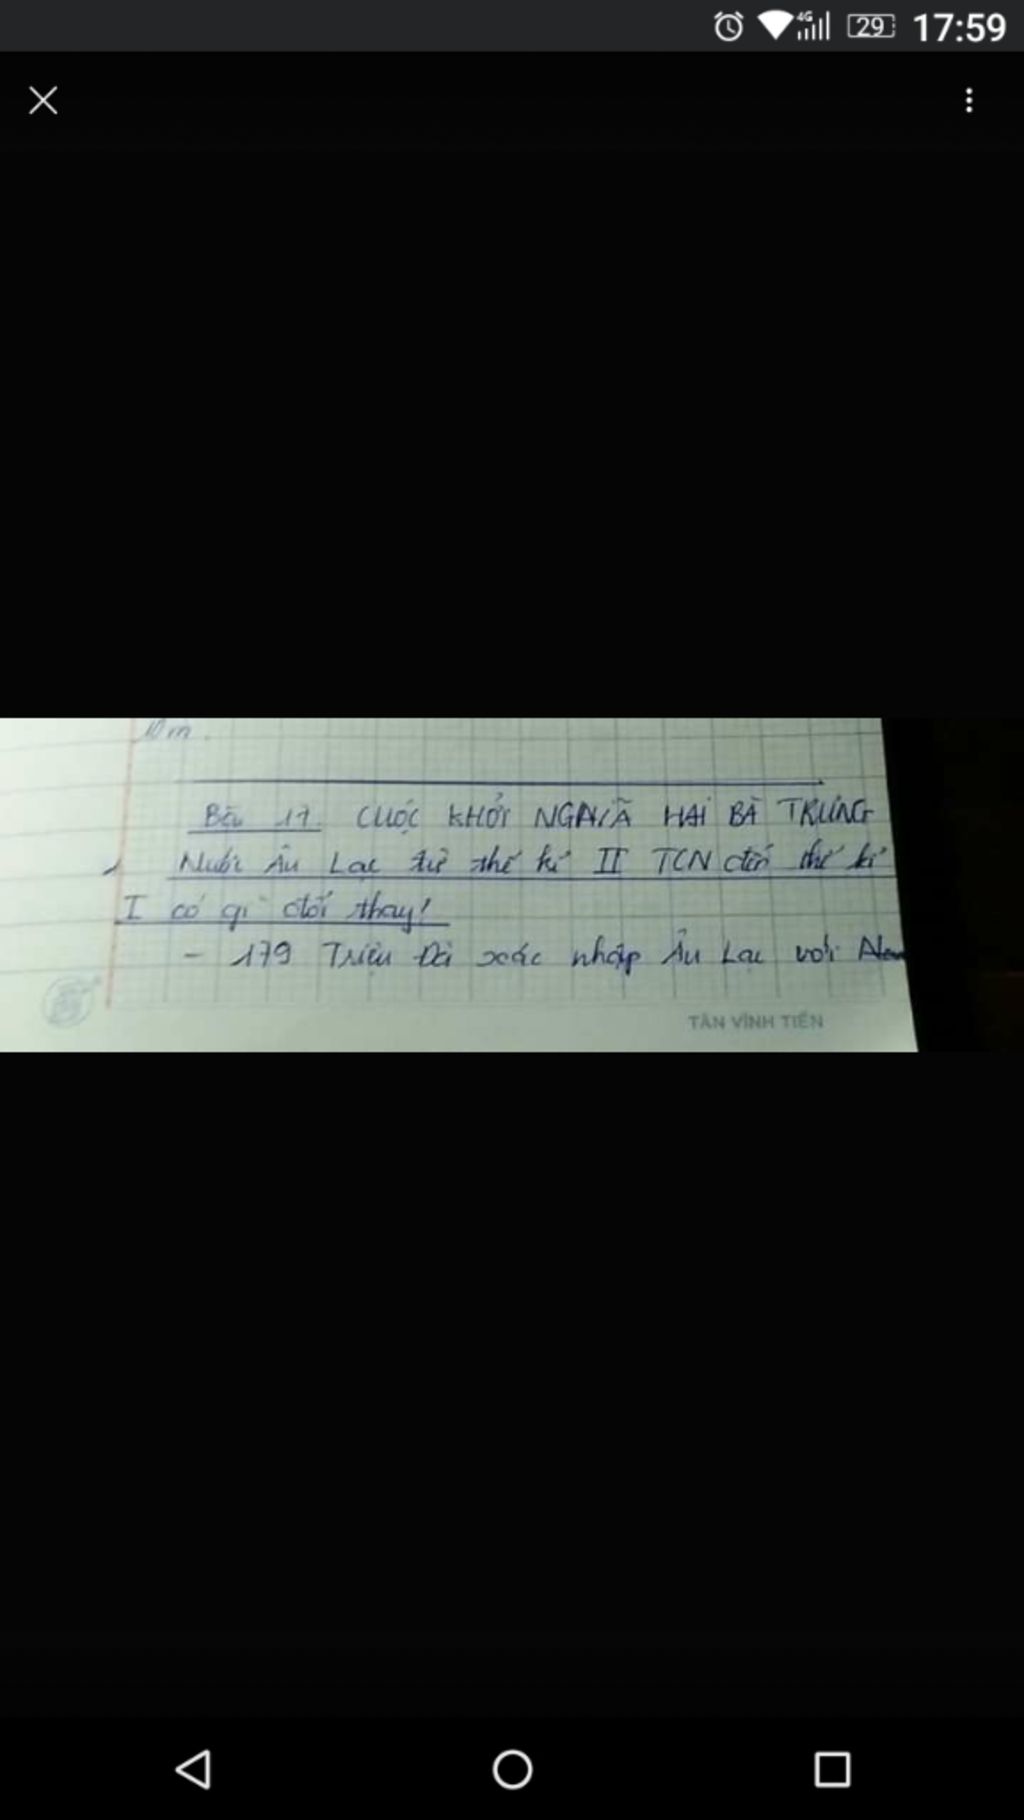 4G 29 17:59
Bài 17. CUỘC KHỞI NGHĨA HAI BÀ TRƯNG
Nước Âu Lạc từ thế kỉ II TCN đến thế kỉ
I có gì đổi thay!
- 179 Triệu Đà xác nhập Âu Lạc với
TÂN VĨNH TIẾN